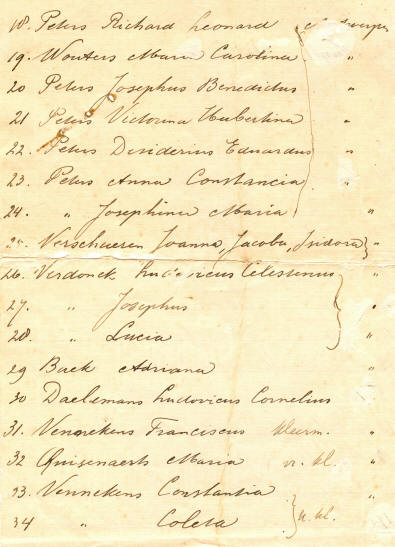 18. Peters Richard Leonard Antwerpen
19. Wouters Maria Carolina "
20 Peters Josephus Benedictus "
21 Peters Victorina Hubertina "
22. Peters Desiderius Eduardus "
23. Peters Anna Constancia "
24. " Josephina Maria "
25. Verschueren Joanna, Jacoba, Isidora "
26. Verdonck Ludovicus Celestinus "
27. " Josephus "
28. " Lucia "
29 Buck Adriana "
30 Daelemans Ludovicus Cornelius "
31. Vennekens Franciscus kleerm. "
32 Quisenaerts Maria vr. kl. "
33. Vennekens Constantia
34 " Coleta kl. "